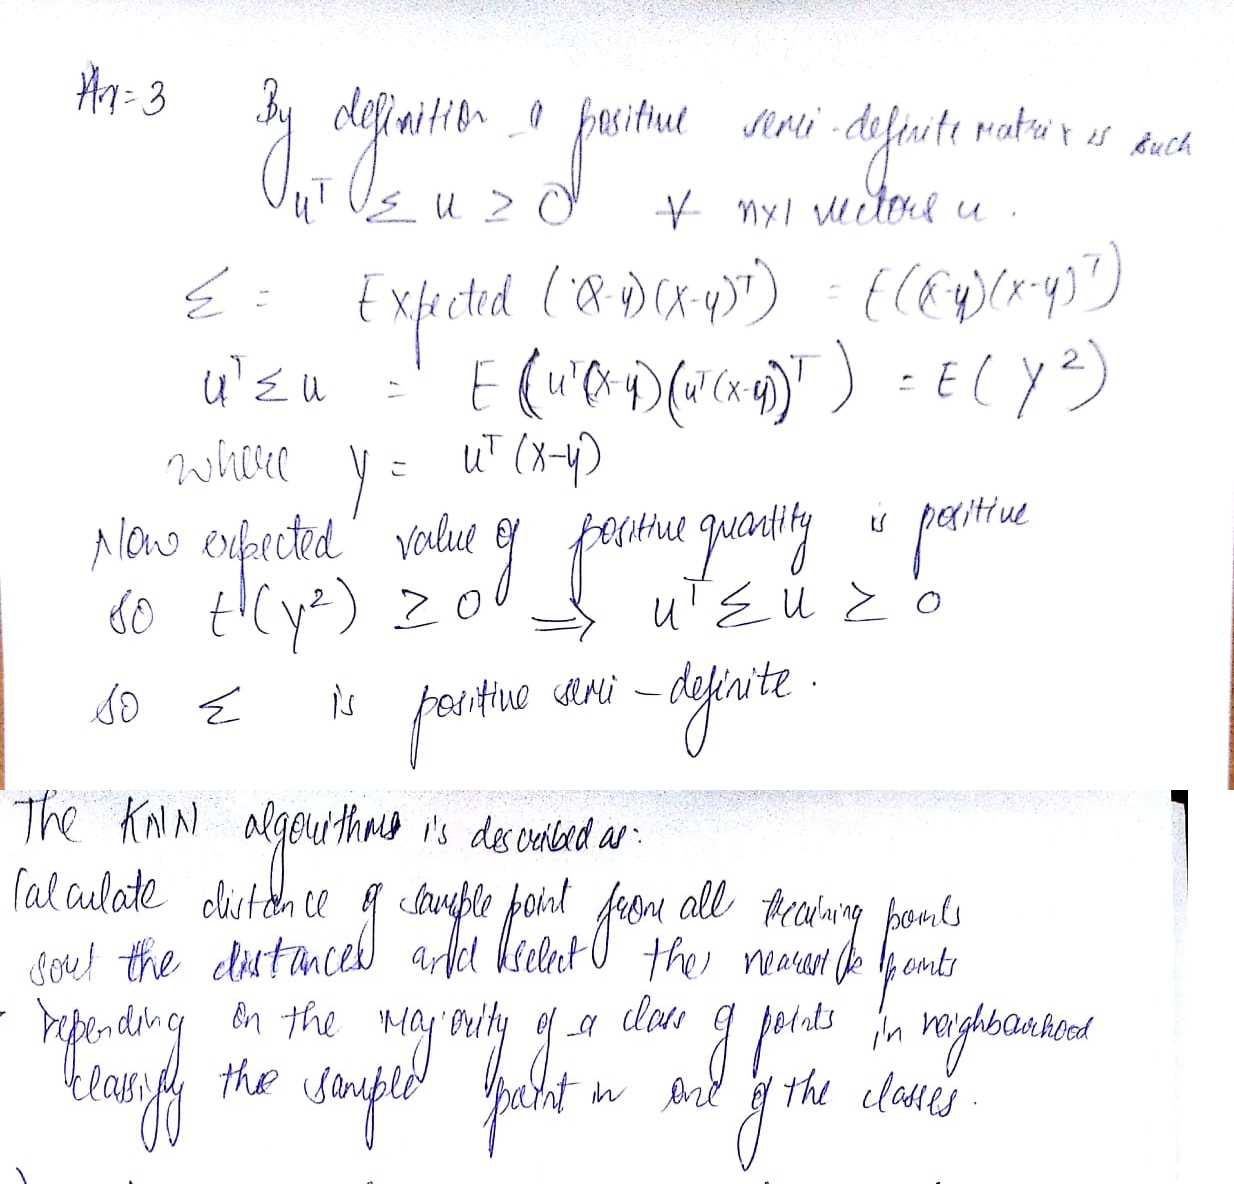 An=3 By definition a positive semi-definite matrix is such
uᵀ Σ u ≥ 0 ∀ n×1 vectors u.
Σ = Expected ((x-μ)(x-μ)ᵀ) = E((x-μ)(x-μ)ᵀ)
uᵀΣu = E(uᵀ(x-μ)(uᵀ(x-μ))ᵀ) = E(Y²)
where Y = uᵀ(x-μ)
Now expected value of positive quantity is positive
so E(Y²) ≥ 0 ⇒ uᵀΣu ≥ 0
so Σ is positive semi-definite.
The KNN algorithms is described as:
Calculate distance of sample point from all training points
sort the distances and select the nearest k points
- Depending on the majority of a class of points in neighbourhood
classify the sample point in one of the classes.